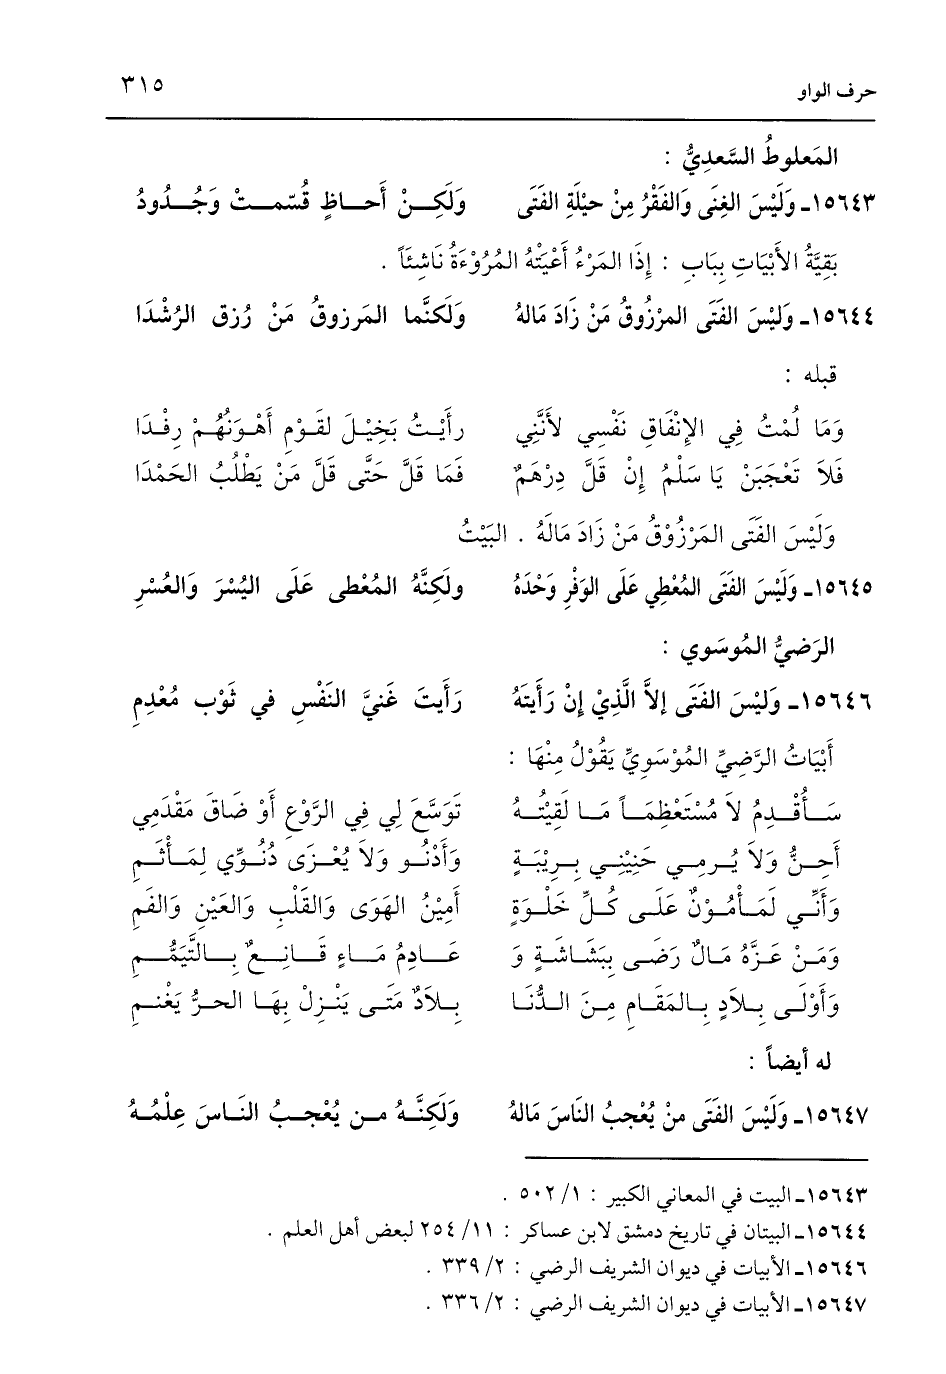 حرف الواو ٣١٥
المَعلوطُ السَّعدِيُّ :
١٥٦٤٣ـ وَلَيْسَ الغِنَى وَالفَقْرُ مِنْ حيْلَةِ الفَتَى وَلَكِـــنْ أَحـــاظٍ قُسّمـــتْ وَجُـــدُودُ
بَقِيَّةُ الأَبْيَاتِ بِبَابِ : إِذَا المَرْءُ أَعْيَتْهُ المُرُوْءَةُ نَاشِئَاً .
١٥٦٤٤ـ وَلَيْسَ الفَتَى المرْزُوقُ مَنْ زَادَ مَالهُ وَلَكنَّما المَرزوقُ مَنْ رُزق الرُشْدَا
قبله :
وَمَا لُمْتُ فِي الإِنْفَاقِ نَفْسِي لأَنَّنِي رأَيْـتُ بَخِيْـلَ لقَـوْمِ أَهْـوَنُهُـمْ رِفْـدَا
فَلاَ تَعْجَبَنْ يَا سَلْمُ إِنْ قَلَّ دِرْهَمٌ فَمَا قَلَّ حَتَّى قَلَّ مَنْ يَطْلُبُ الحَمْدَا
وَلَيْسَ الفَتَى المَرْزُوْقُ مَنْ زَادَ مَالَهُ . البَيْتُ
١٥٦٤٥ـ وَلَيْسَ الفَتَى المُعْطِي عَلَى الوَفْرِ وَحْدَهُ ولَكِنَّهُ المُعْطى عَلَى اليُسْرَ وَالعُسْرِ
الرَضيُّ المُوسَوي :
١٥٦٤٦ـ وَلَيْسَ الفَتَى إلاَّ الَّذِيْ إنْ رَأَيتَهُ رَأَيتَ غَنيَّ النَفْسِ في ثَوْب مُعْدِمِ
أَبْيَاتُ الرَّضِيِّ المُوْسَوِيِّ يَقُوْلُ مِنْهَا :
سَـأُقْـدِمُ لاَ مُسْتَعْظِمَـاً مَـا لَقِيْتُـهُ تَوَسَّعَ لِي فِي الرَّوْعِ أَوْ ضَاقَ مَقْدَمِي
أَحِـنُّ وَلاَ يُـرمِـي حَنِيْنِـي بِـرِيْبَـةٍ وَأَدْنُـو وَلاَ يُعْـزَى دُنُـوِّي لِمَـأْثَـمِ
وَأَنِّـي لَمَـأْمُـوْنٌ عَلَـى كُـلِّ خَلْـوَةٍ أَمِيْنُ الهَوَى وَالقَلْبِ وَالعَيْنِ وَالفَمِ
وَمَـنْ عَـزَّهُ مَـالٌ رَضَـى بِبَشَـاشَـةٍ وَ عَـادِمُ مَـاءٍ قَـانِـعٌ بِـالتَّيَمُّـمِ
وَأَوْلَـى بِـلاَدٍ بِـالمَقَـامِ مِـنَ الـدُّنَـا بِـلاَدٌ مَتَـى يَنْـزِلْ بِهَـا الحـرُّ يَغْنَـمِ
له أيضاً :
١٥٦٤٧ـ وَلَيْسَ الفَتَى منْ يُعْجبُ النَاسَ مَالهُ وَلَكِنَّـهُ مـن يُعْجـبُ النَـاسَ عِلْمُـهُ
١٥٦٤٣ـ البيت في المعاني الكبير : ١/ ٥٠٢ .
١٥٦٤٤ـ البيتان في تاريخ دمشق لابن عساكر : ١١/ ٢٥٤ لبعض أهل العلم .
١٥٦٤٦ـ الأبيات في ديوان الشريف الرضي : ٢/ ٣٣٩ .
١٥٦٤٧ـ الأبيات في ديوان الشريف الرضي : ٢/ ٣٣٦ .